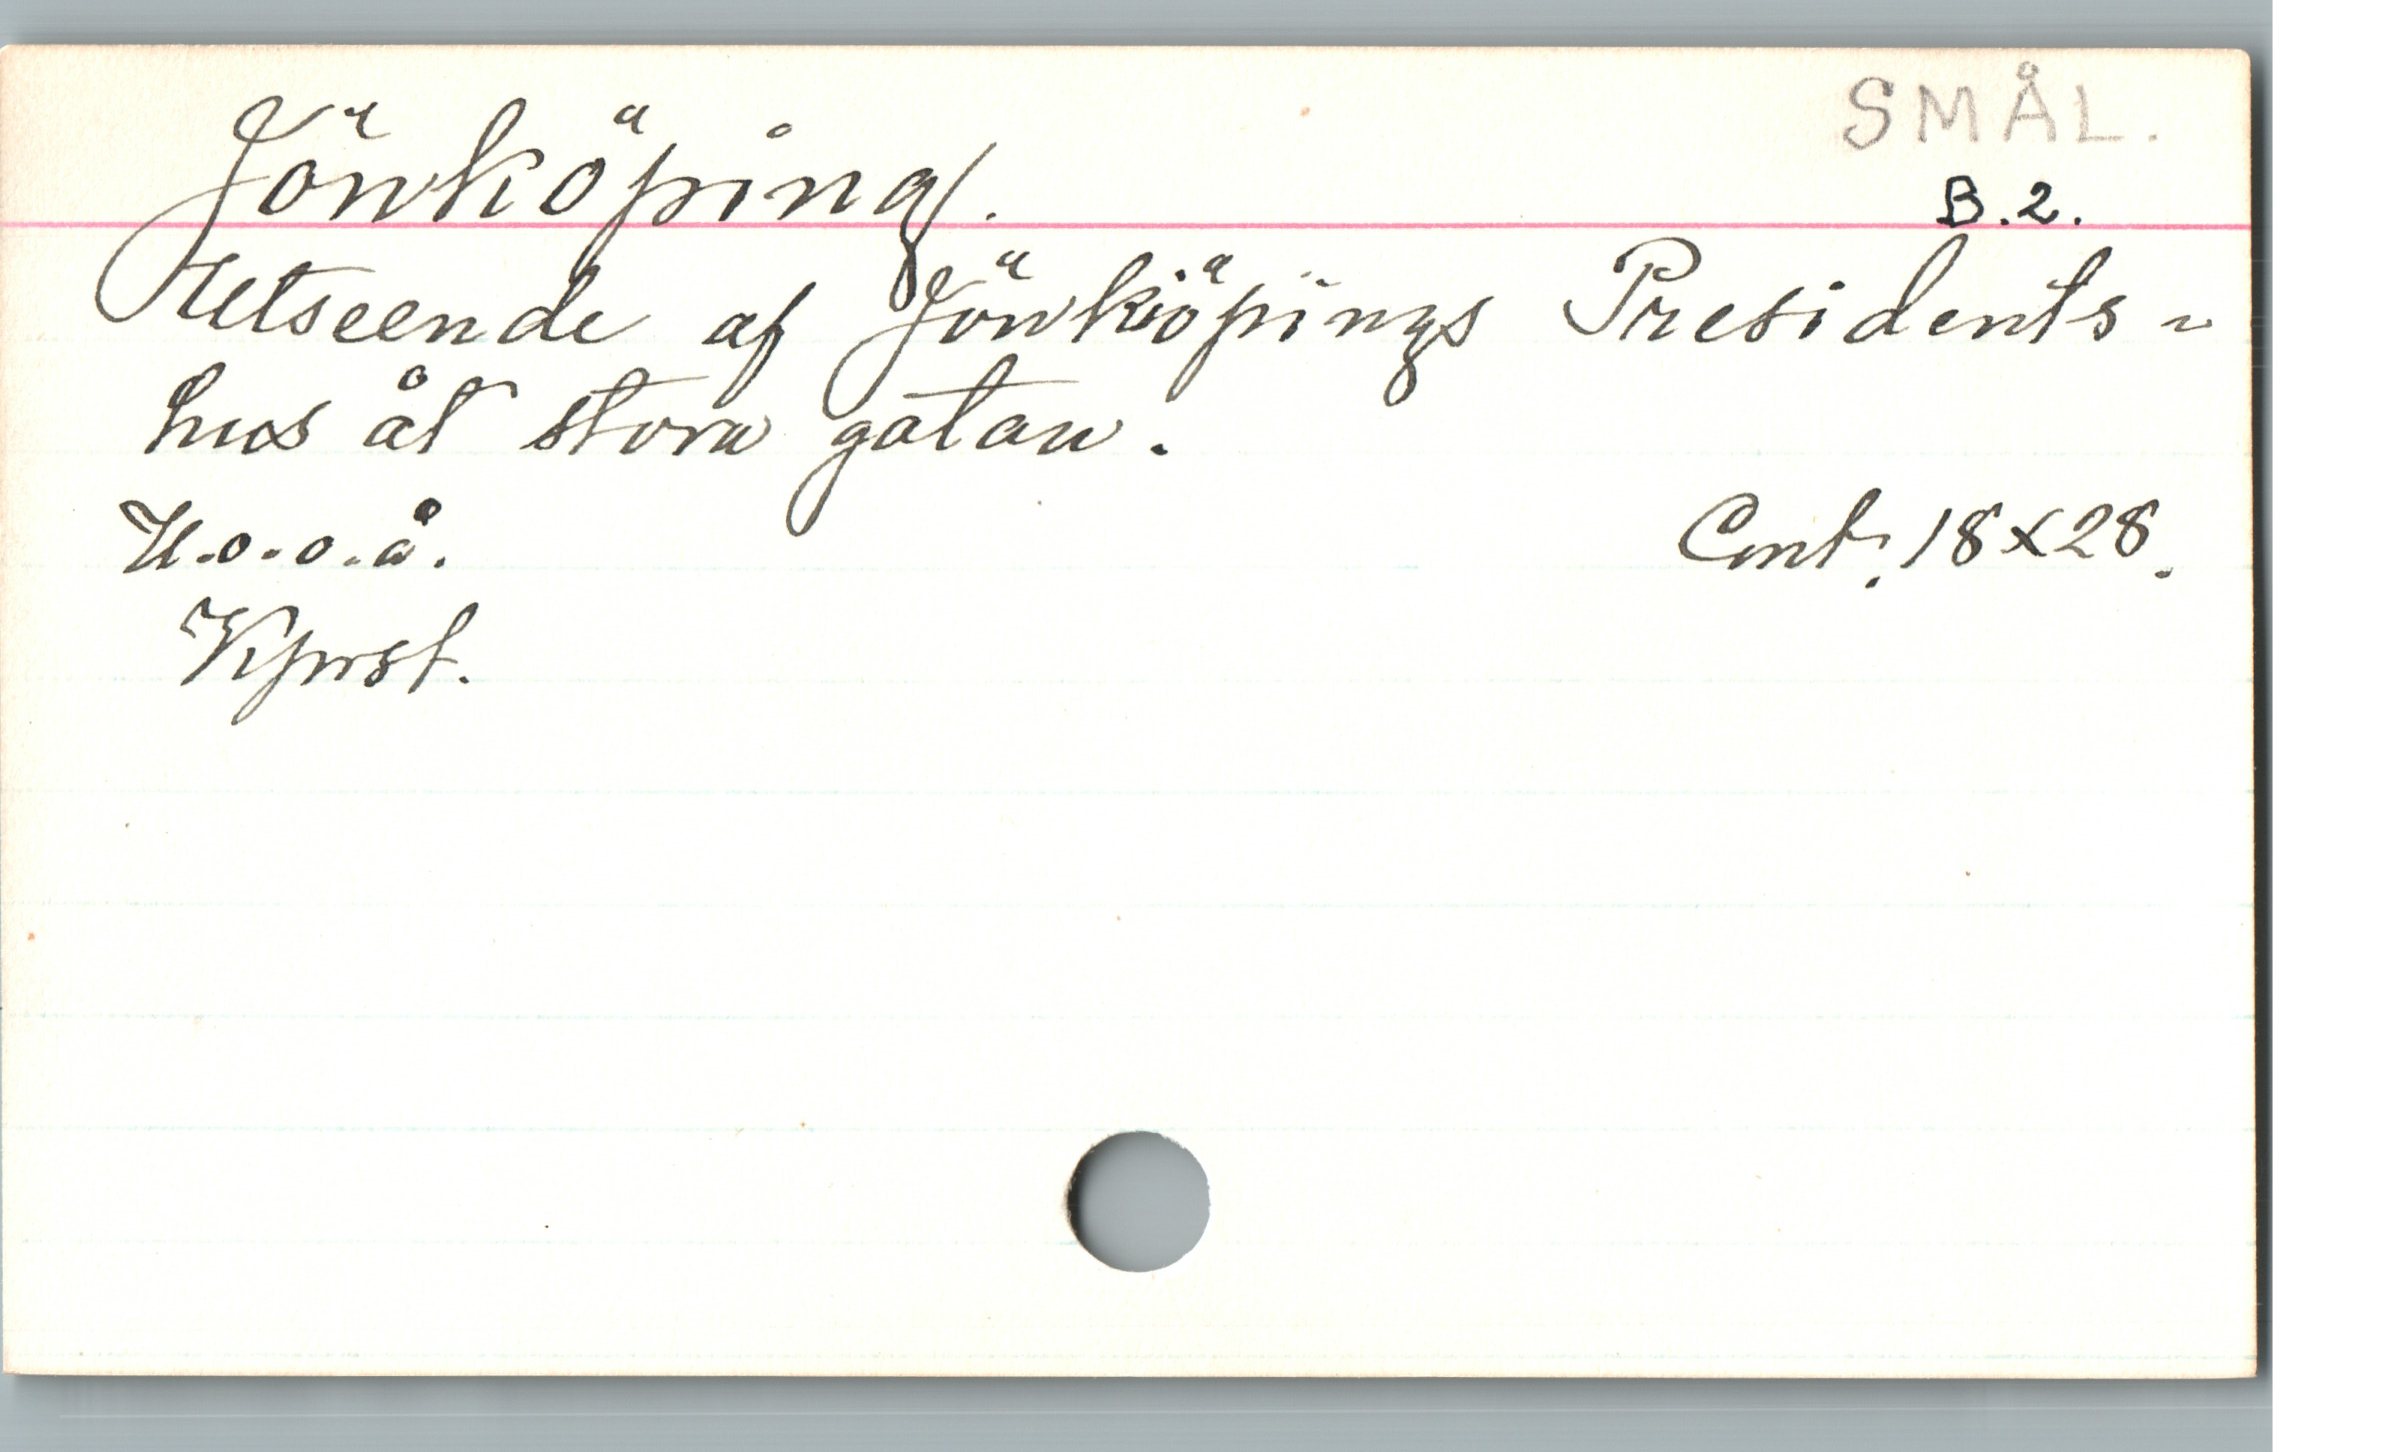 SMÅL.
Jönköping.
B.2.
Utseende af Jönköpings Presidents-
hus åt stora gatan.
U.o.o.å.
Cont. 18x28.
Kprst.